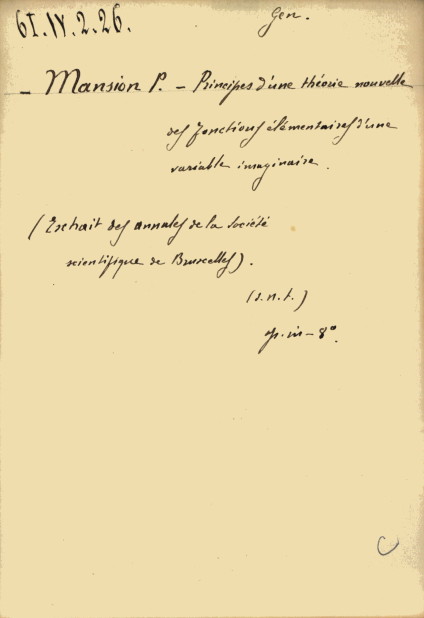 61.IV.2.26.
Gen.
- Mansion P. - Principes d'une théorie nouvelle
des fonctions élémentaires d'une
variable imaginaire.
(Extrait des annales de la Société
scientifique de Bruxelles).
(s.n.t.)
in-8°.
C